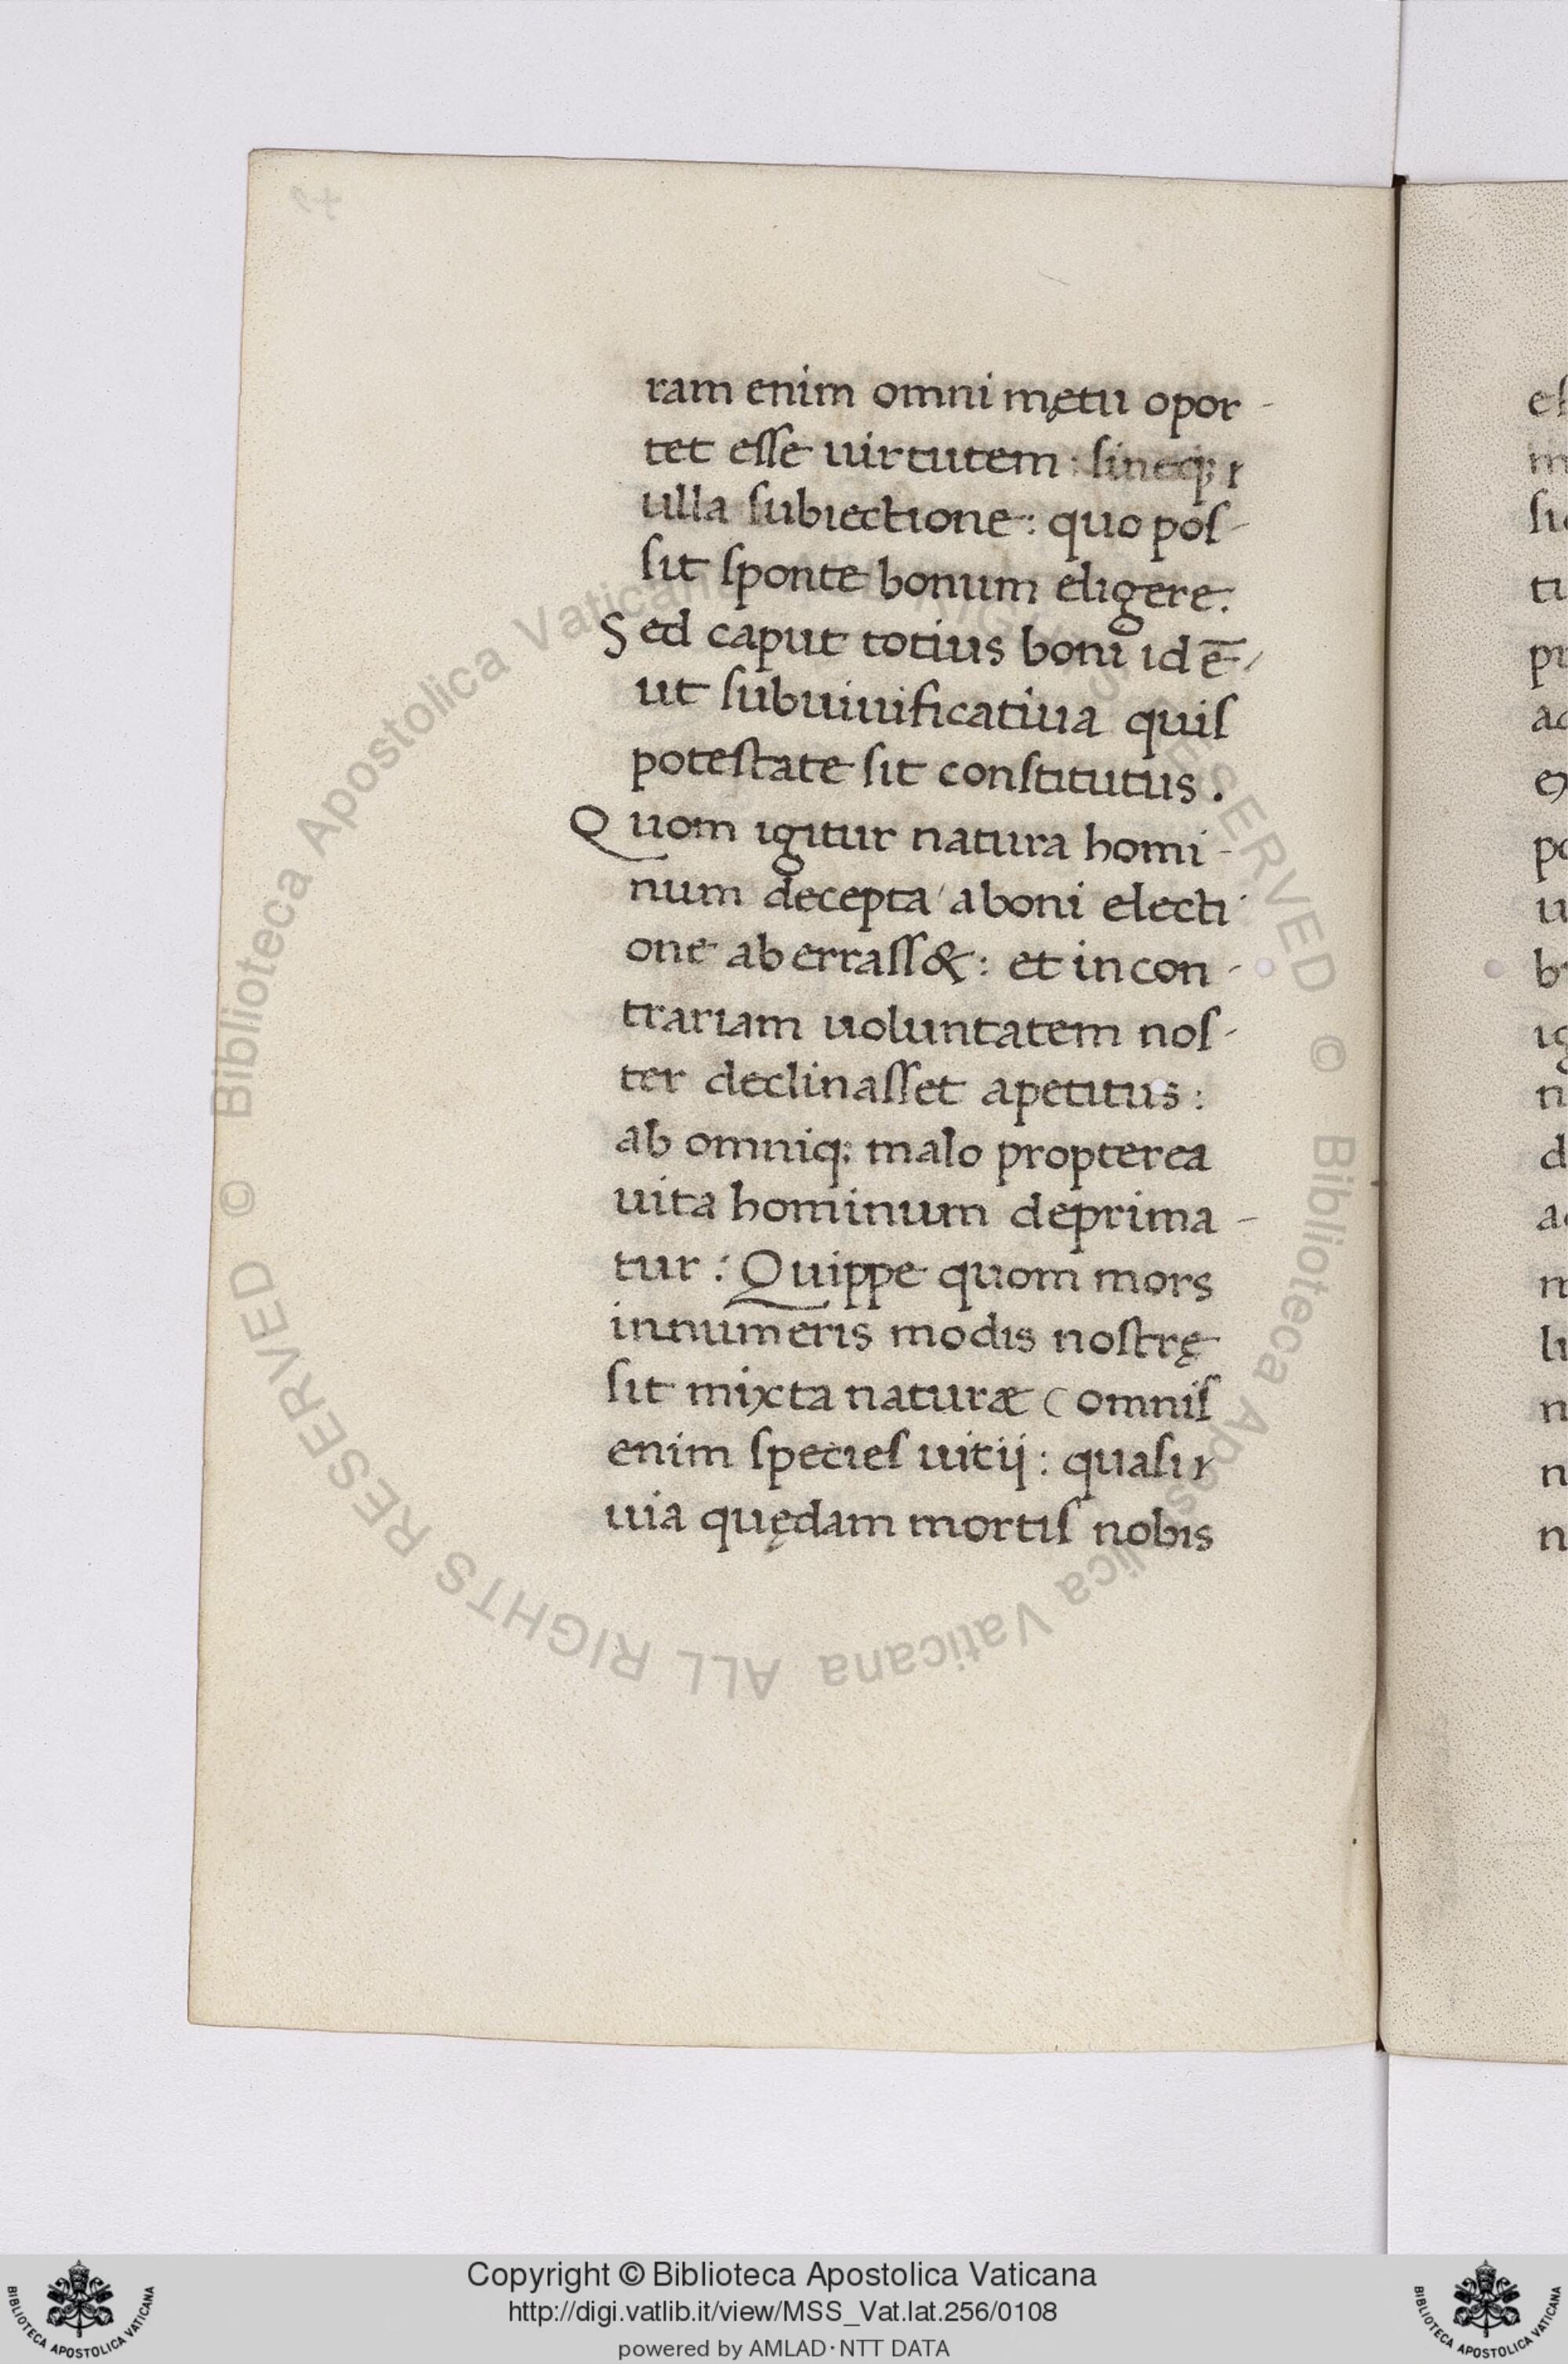 ram enim omni mętu opor-
tet eſſe uirtutem : ſineq;
ulla ſubiectione : quo poſ-
ſit ſponte bonum eligere.
Sed caput totius boni id ē /
ut ſubuiuificatiua quiſ
poteſtate ſit conſtitutus .
Quom igitur natura homi-
num decepta / a boni electi-
one aberraſſ& : et in con-
trariam uoluntatem noſ-
ter declinaſſet apetitus :
ab omniq; malo propterea
uita hominum deprima-
tur : Quippe quom mors
innumeris modis noſtrę
ſit mixta naturæ ( omniſ
enim ſpecieſ uitij : quaſi
uia quędam mortiſ nobis
© Biblioteca Apostolica Vaticana ALL RIGHTS RESERVED © Biblioteca Apostolica Vaticana ALL RIGHTS RESERVED
Copyright © Biblioteca Apostolica Vaticana
http://digi.vatlib.it/view/MSS_Vat.lat.256/0108
powered by AMLAD · NTT DATA
BIBLIOTECA APOSTOLICA VATICANA
BIBLIOTECA APOSTOLICA VATICANA